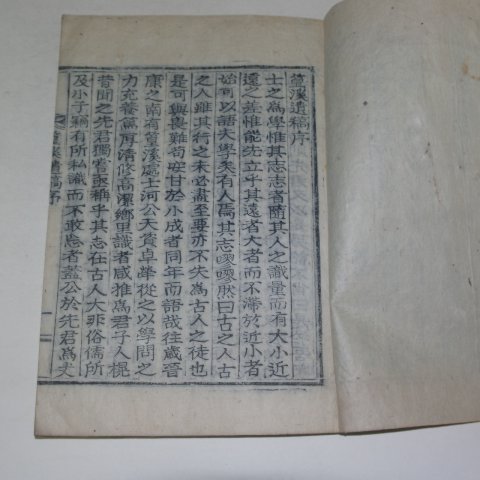 篁溪遺稿序
士之為學惟其志志者隨其人之識量而有大小近
遠之差惟能先立乎其遠者大者而不滯於近小者
始可以語大學矣有人焉其志嘐嘐然曰古之人古
之人雖其行之未必盡至要亦不失為古人之徒也
是可與畏難苟安甘於小成者同年而語哉往歲晉
康之南有篁溪處士河公天資卓犖從之以學問之
力充養篤厚清修高潔鄉里識者咸推為君子人梶
昔聞之先君獨嘗亟稱乎其志在古人大非俗儒所
及小子竊有所私識而不敢忘者蓋公於先君為丈
篁溪遺稿序